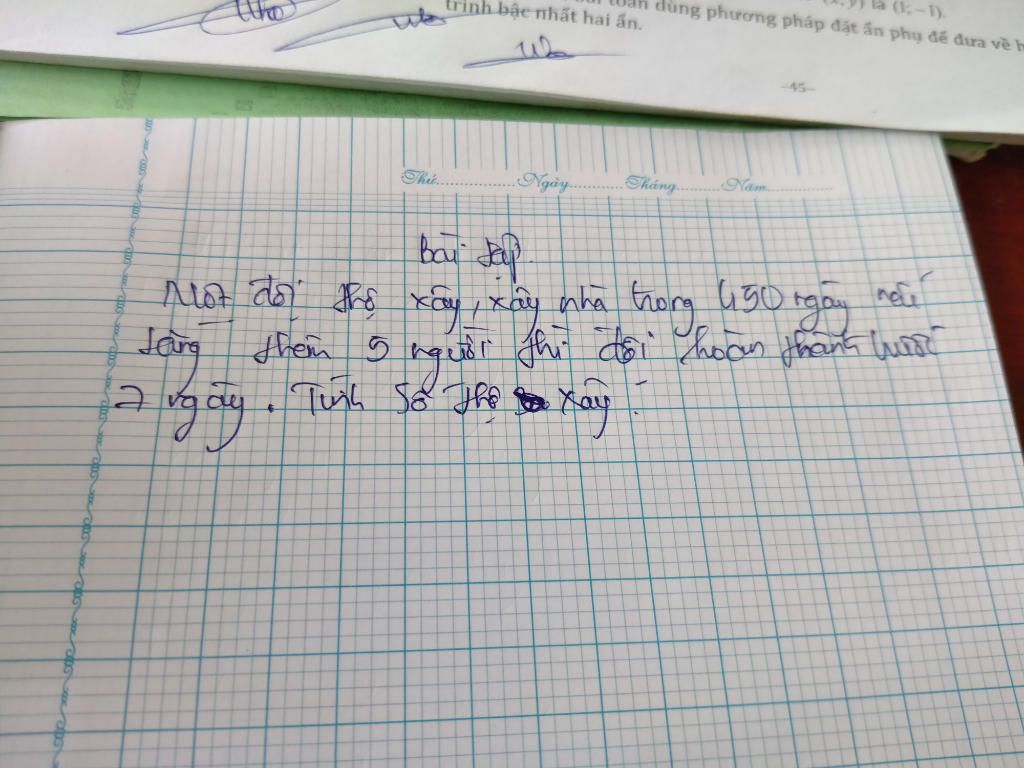 (x, y) là (1; −1).
toán dùng phương pháp đặt ẩn phụ để đưa về h
trình bậc nhất hai ẩn.
–45–
Thứ...............Ngày...........Tháng.........Năm..............
Bài tập.
Một đội thợ xây, xây nhà trong 450 ngày nếu
tăng thêm 5 người thì đội hoàn thành trước
7 ngày. Tính số thợ xây.